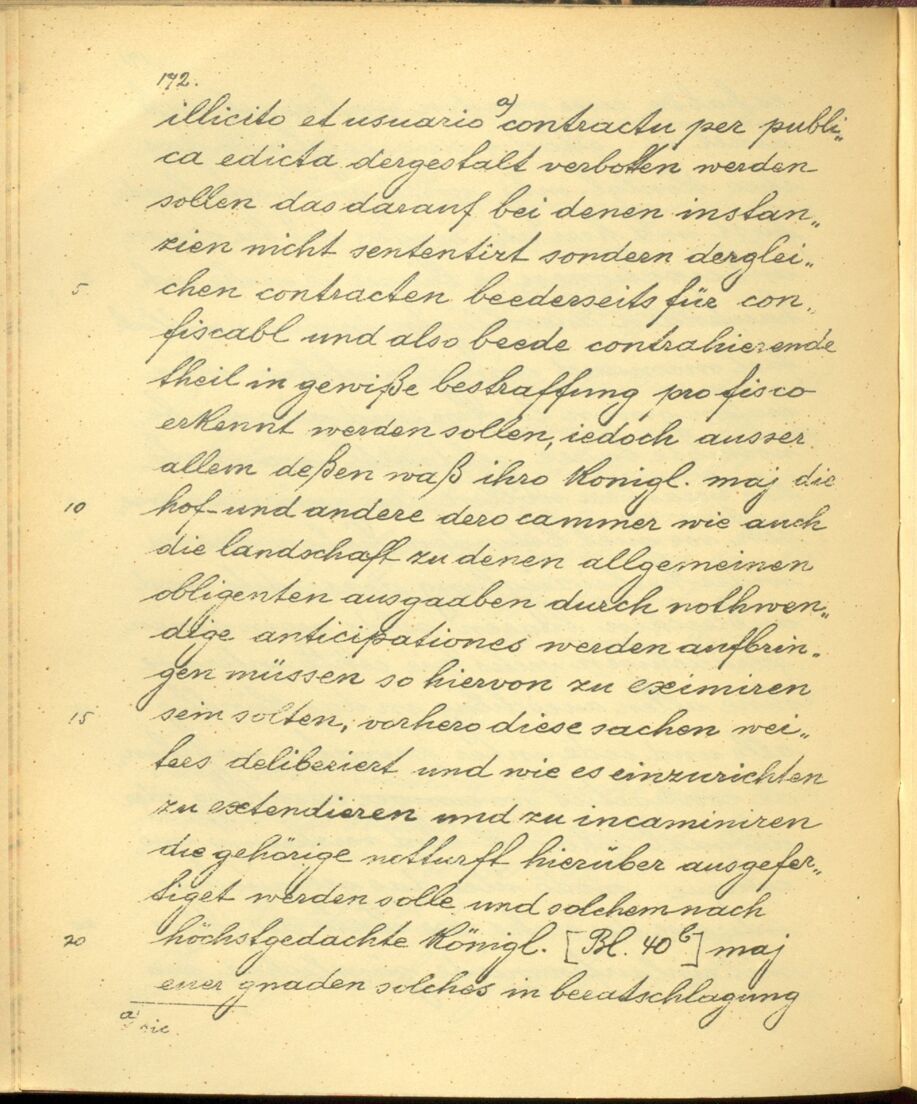 172.
illicito et usuario a) contractu per publi„
ca edicta dergestalt verbotten werden
sollen das darauf bei denen instan„
zien nicht sententirt sondern derglei„
5 chen contracten beederseits für con„
fiscabl und also beede contrahierende
theil in gewiße bestraffung pro fisco
erkennt werden sollen, iedoch ausser
allem deßen waß ihro Konigl. maj die
10 hof- und andere dero cammer wie auch
die landschaft zu denen allgemeinen
obligenten ausgaaben durch nothwen„
dige anticipationes werden aufbrin„
gen müssen so hiervon zu eximiren
15 sein solten, vorhero diese sachen wei„
ters deliberiert und wie es einzurichten
zu extendieren und zu incaminiren
die gehörige notturft hierüber ausgefer„
tiget werden solle und solchemnach
20 höchstgedachte Königl. [Bl. 40b] maj
euer gnaden solches in beratschlagung
a) sic